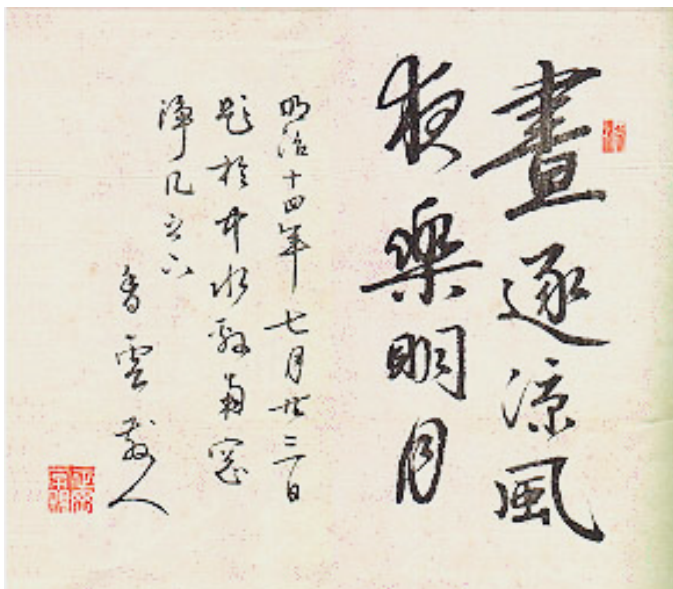 晝逐涼風
夜樂明月
明治十四年七月廿二日
題於竹水
淨几之下
香雲散人